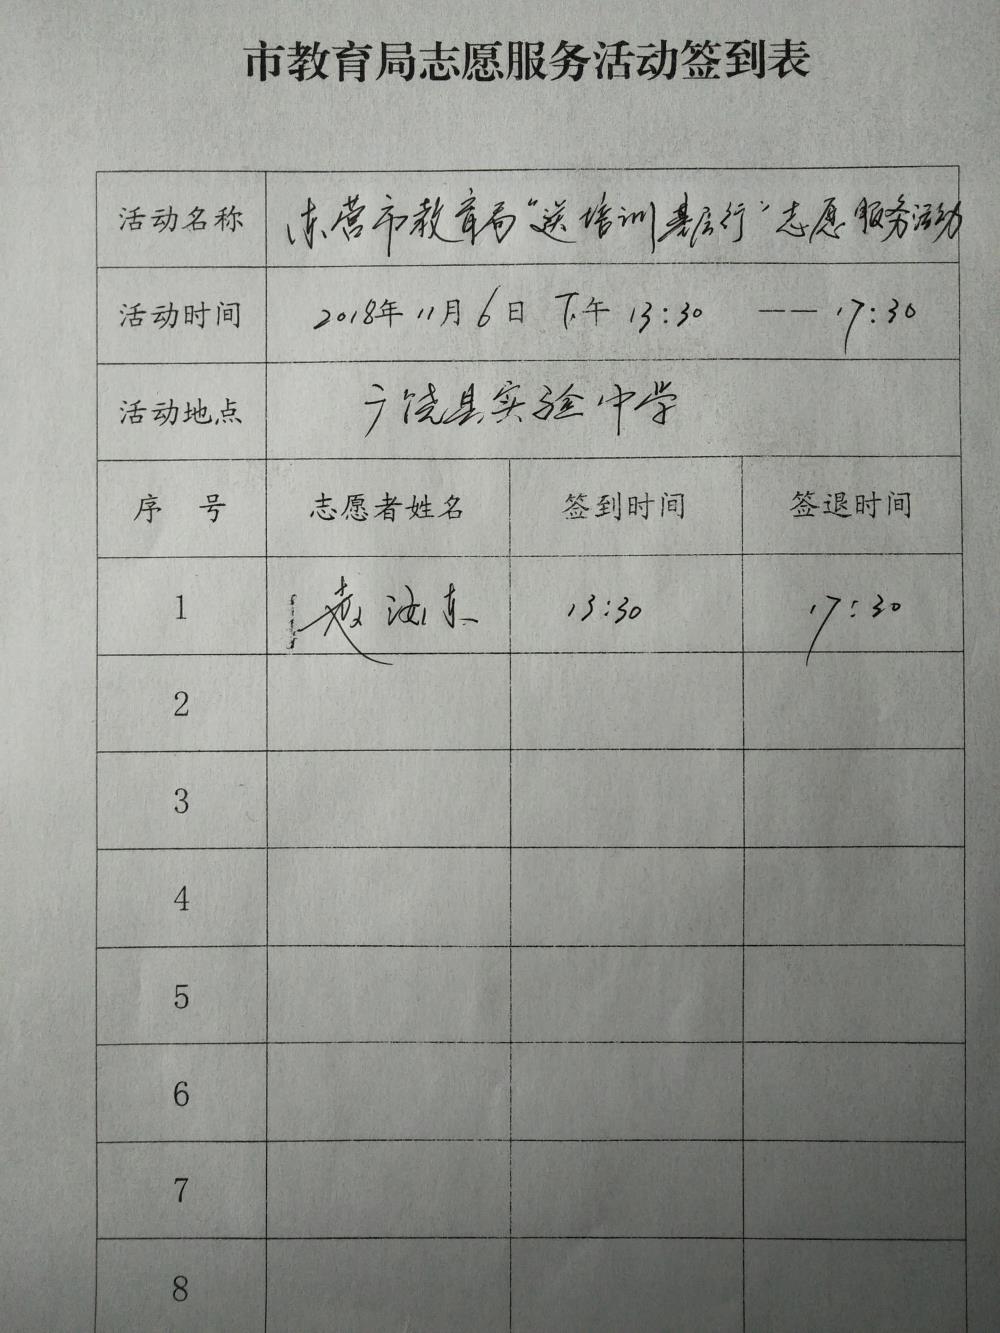 市教育局志愿服务活动签到表
活动名称 东营市教育局“送培训基层行”志愿服务活动
活动时间 2018年11月6日 下午 13:30 —— 17:30
活动地点 广饶县实验中学
序 号 志愿者姓名 签到时间 签退时间
1 赵 东 13:30 17:30
2
3
4
5
6
7
8